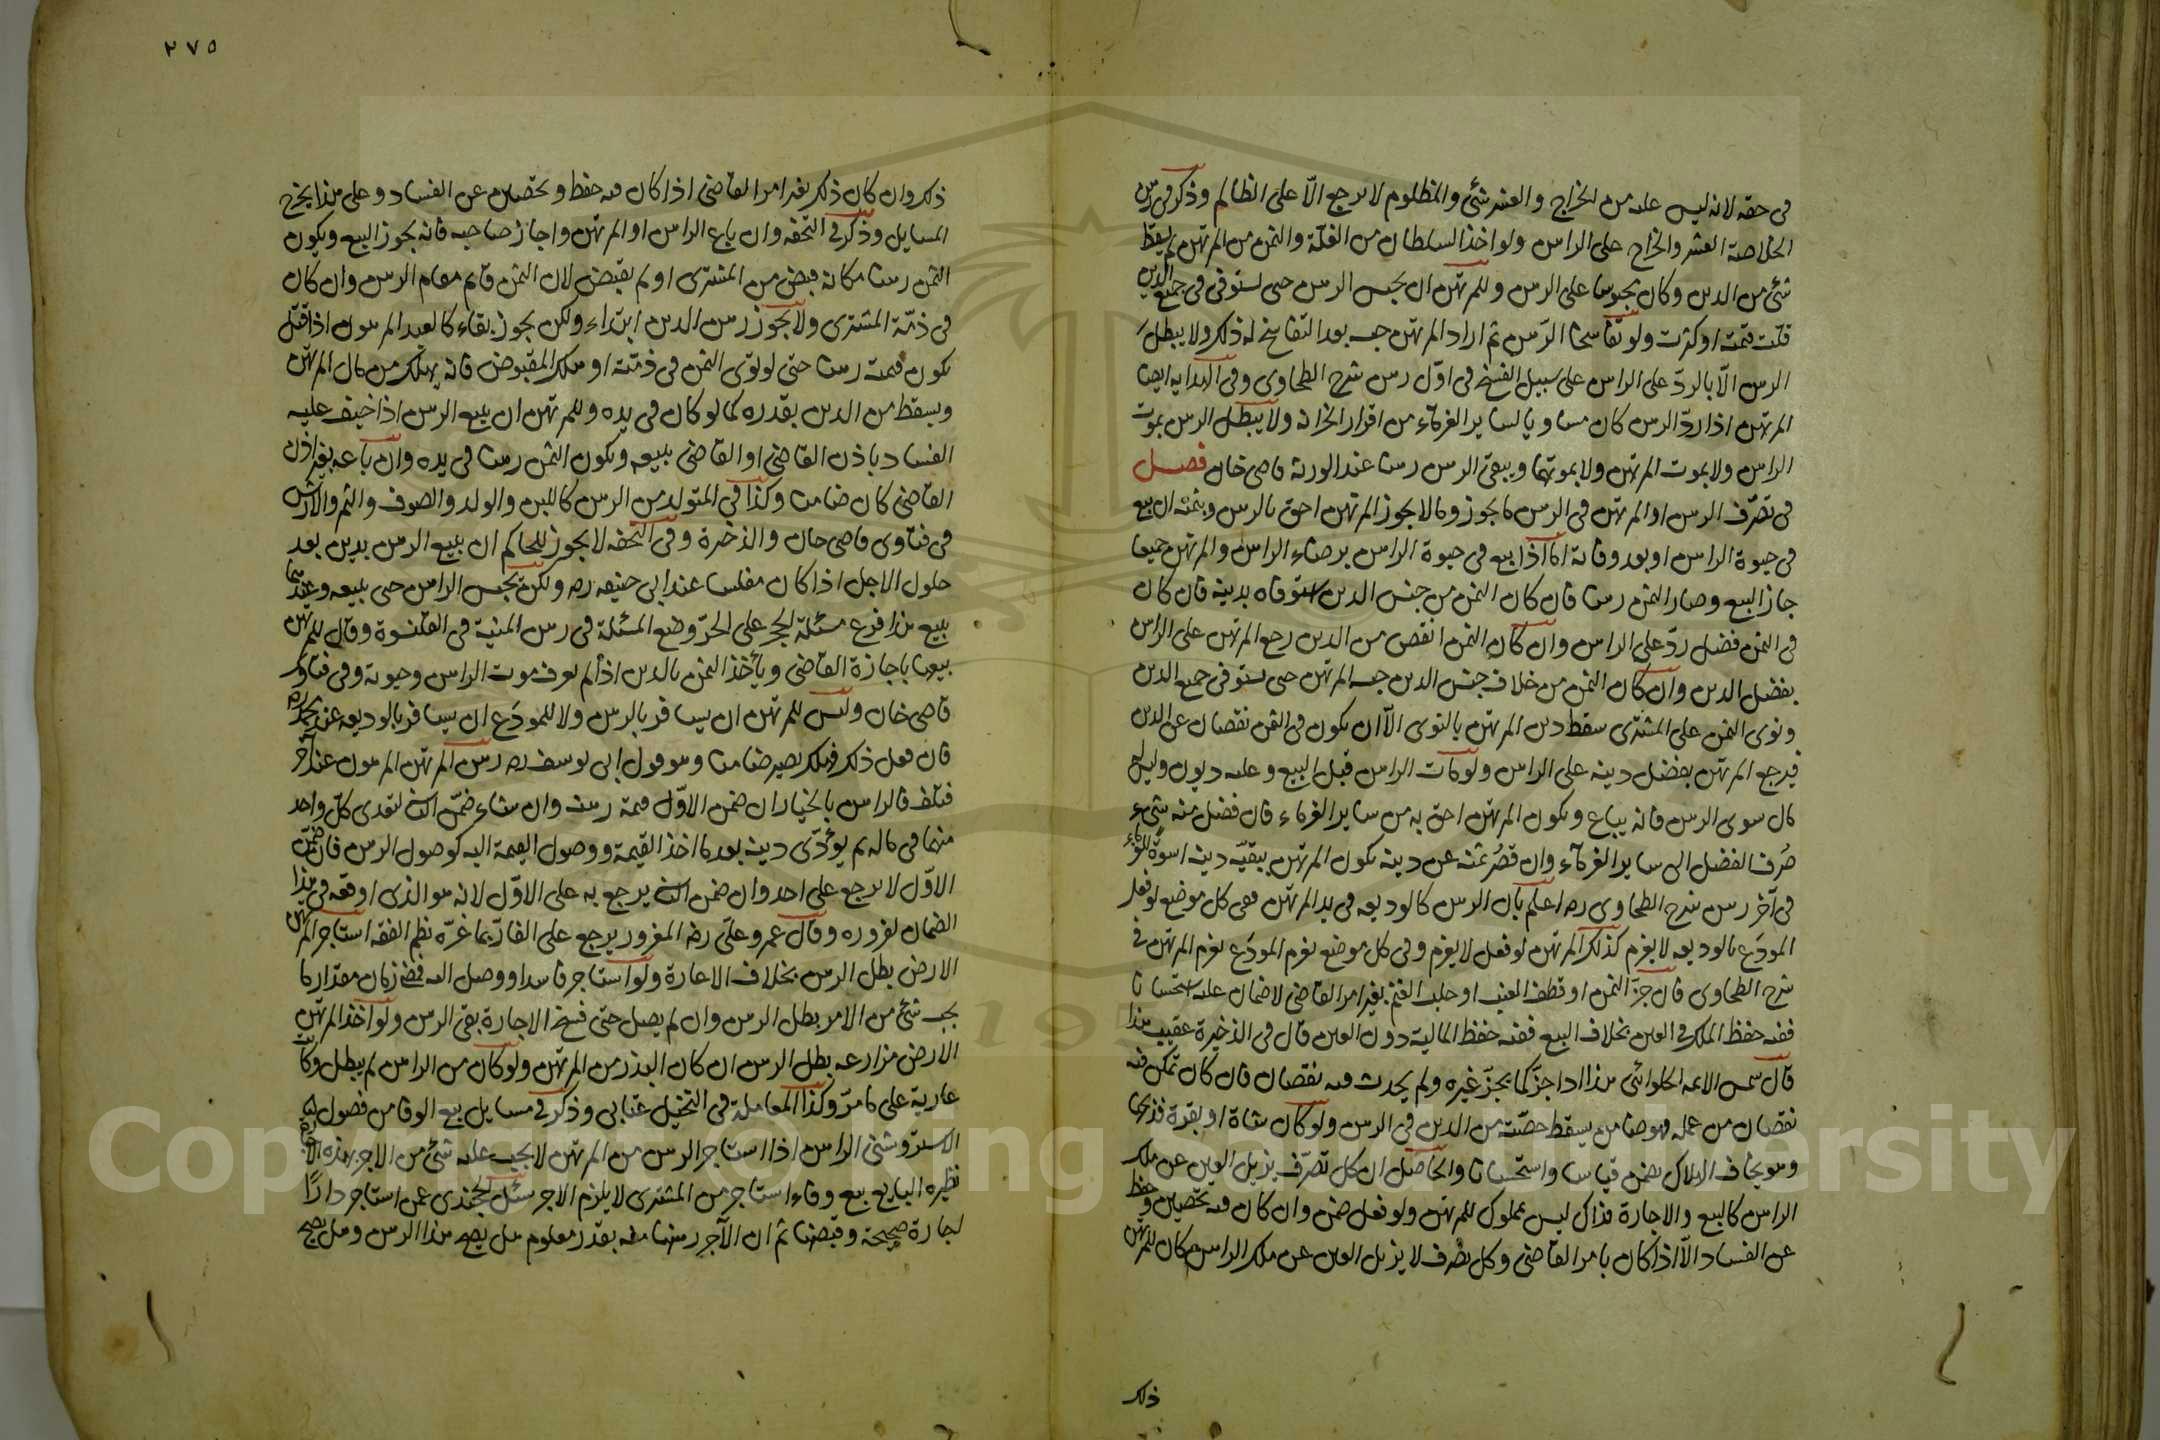 في حقه لانه ليس عليه من الخراج والعشر شئ والمظلوم لا يرجع الّا على الظالم وذكر في رهن
الخلاصة العشر والخراج على الراهن ولو اخذ السلطان من الغلة والثمن من المرتهن لم يسقط
شئ من الدين وكان محبوسا على الرهن وللمرتهن ان يحبس الرهن حتى يستوفي في جميع الدين
قلت قيمته او كثرت ولو تفاسخا الرهن ثم اراد المرتهن حبسه بعد التفاسخ له ذلك ولا يبطل
الرهن الّا بالردّ على الراهن على سبيل الفسخ في اوّل رهن شرح الطحاوي وفي الهداية ايضا
المرتهن اذا ردّ الرهن كان مساويا لساير الغرماء من اقرار الخزانة ولا يبطل الرهن بموت
الراهن ولا بموت المرتهن ولا بموتهما ويبقى الرهن رهنا عند الورثة قاضي خان فصل
في تصرّف الراهن او المرتهن في الرهن ما يجوز وما لا يجوز المرتهن احق بالرهن وبثمنه ان بيع
في حيوة الراهن او بعد وفاته اما اذا بيع في حيوة الراهن برضاء الراهن والمرتهن جميعا
جاز البيع وصار الثمن رهنا فان كان الثمن من جنس الدين استوفاه بدينه فان كان
في الثمن فضل ردّ على الراهن وان كان الثمن انقص من الدين رجع المرتهن على الراهن
بفضل الدين وان كان الثمن من خلاف جنس الدين حبسه المرتهن حتى يستوفي جميع الدين
وتوى الثمن على المشتري سقط دين المرتهن بالتوى الّا ان يكون في الثمن نقصان عن الدين
فيرجع المرتهن بفضل دينه على الراهن ولو مات الراهن قبل البيع وعليه ديون وليس له
مال سوى الرهن فانه يباع ويكون المرتهن احق به من ساير الغرماء فان فضل منه شئ
صُرف الفضل الى ساير الغرماء وان قصُر ثمنه عن دينه يكون المرتهن ببقيّة دينه اسوة للغرماء
في آخر رهن شرح الطحاوي ره اعلم بان الرهن كالوديعة في يد المرتهن ففي كل موضع لو فعل
المودَع بالوديعة لا يغرم كذلك المرتهن لو فعل لا يغرم وفي كل موضع يغرم المودَع يغرم المرتهن في
شرح الطحاوي فان جزّ الثمن او قطف العنب او حلب الغنم بغير امر القاضي لا ضمان عليه استحسانا
ففيه حفظ الملك في العين بخلاف البيع ففيه حفظ المالية دون العين قال في الذخيرة عقيب هذا
قال شمس الائمة الحلوائي هذا اذا جزّ كما يجزّ غيره ولم يحدث فيه نقصان فان كان تمكن فيه
نقصان من عمله فهو ضامن يسقط حصّته من الدين في الرهن ولو كان شاة او بقرة فذبحها
وهو يخاف الهلاك يضمن قياسا واستحسانا والحاصل ان كل تصرّف يزيل العين عن ملك
الراهن كالبيع والاجارة فذاك ليس بمملوك للمرتهن ولو فعل ضمن وان كان فيه تحصين وحفظ
عن الفساد الّا اذا كان بامر القاضي وكل تصرف لا يزيل العين عن ملك الراهن كان للمرتهن
ذلك
٢٧٥
ذلك وان كان ذلك بغير امر القاضي اذا كان فيه حفظ وتحصين عن الفساد وعلى هذا يخرج
المسايل وذكر في التحفة وان باع الراهن او المرتهن واجاز صاحبه فانه يجوز البيع ويكون
الثمن رهنا مكانه قبض من المشتري او لم يقبض لان الثمن قايم مقام الرهن وان كان
في ذمّة المشتري ولا يجوز رهن الدين ابتداء ولكن يجوز بقاء كالعبد المرهون اذا قتل
يكون قيمته رهنا حتى لو توى الثمن في ذمّته او هلك المقبوض فانه يهلك من مال المرتهن
ويسقط من الدين بقدره كما لو كان في يده وللمرتهن ان يبيع الرهن اذا خيف عليه
الفساد باذن القاضي او القاضي يبيعه ويكون الثمن رهنا في يده وان باعه بغير اذن
القاضي كان ضامنا وكذا في المتولد من الرهن كاللبن والولد والصوف والثمر والارش
في فتاوى قاضي خان والذخيرة وفي التحفة لا يجوز للحاكم ان يبيع الرهن بدين بعد
حلول الاجل اذا كان مفلسا عند ابي حنيفة ره ولكن يحبس الراهن حتى يبيعه وعندهما
يبيع هذا فرع مسئلة الحجر على الحرّ وضع المسئلة في رهن المنية في القلنسوة وقال للمرتهن
بيعها باجازة القاضي ويأخذ الثمن بالدين اذا لم يعرف موت الراهن وحيوته وفي فتاوى
قاضي خان وليس للمرتهن ان يسافر بالرهن ولا للمودَع ان يسافر بالوديعة عند محمد ره
فان فعل ذلك فهلك يصير ضامنا وهو قول ابي يوسف ره رهن المرتهن المرهون عند آخر
فتلف فالراهن بالخيار ان ضمن الاوّل قيمة رهنه وان شاء ضمّن الثاني لتعدي كلّ واحد
منهما في ماله ثم يؤدّي دينه بعد ما اخذ القيمة ووصول القيمة اليه كوصول الرهن فان ضمّن
الاوّل لا يرجع على احد وان ضمن الثاني يرجع به على الاوّل لانه هو الذي اوقعه في هذا
الضمان لغروره وقال عمر وعلي رضه المغرور يرجع على الغارّ بما غرّه نظم الفقه استاجر المرتهن
الارض بطل الرهن بخلاف الاعارة ولو استاجر فاسدا ووصل اليه فمضى زمان مقدار ما
يجب شئ من الاجر بطل الرهن وان لم يصل حتى فسخ الاجارة بقي الرهن ولو اخذ المرتهن
الارض مزارعه بطل الرهن ان كان البذر من المرتهن ولو كان من الراهن لم يبطل وكانت
عارية على ما مرّ وكذا المعاملة في النخيل عتابي وذكر في مسايل بيع الوفا من فصول
الاستروشني الراهن اذا استاجر الرهن من المرتهن لا يجب عليه شئ من الاجر بهذه الاجارة
نظيره البايع بيع وفاء استاجر من المشتري لا يلزم الاجر سئل الخجندي عمن استاجر دارًا
اجارة صحيحة وقبضها ثم ان الآجر رهنها منه بقدر معلوم هل يصح هذا الرهن وهل يصح